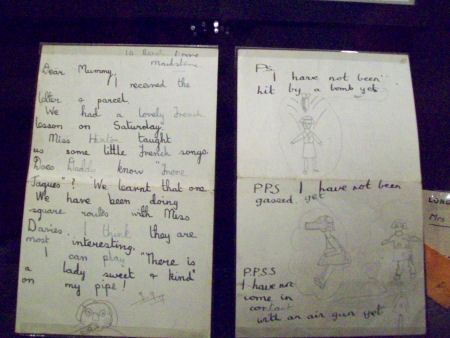 Road
Maidstone
Dear Mummy,
I received the
letter & parcel.
We had a lovely French
lesson on Saturday.
Miss taught
us some little French songs.
Does Daddy know "Frere
Jaques"? We learnt that one.
We have been doing
square roots with Miss
Davies. I think they are
most interesting.
I can play "There is
a lady sweet & kind"
on my pipe!
PS.
I have not been
hit by a bomb yet
P.P.S I have not been
gassed yet
P.P.S.S
I have not
come in
contact
with an air gun yet
Mrs